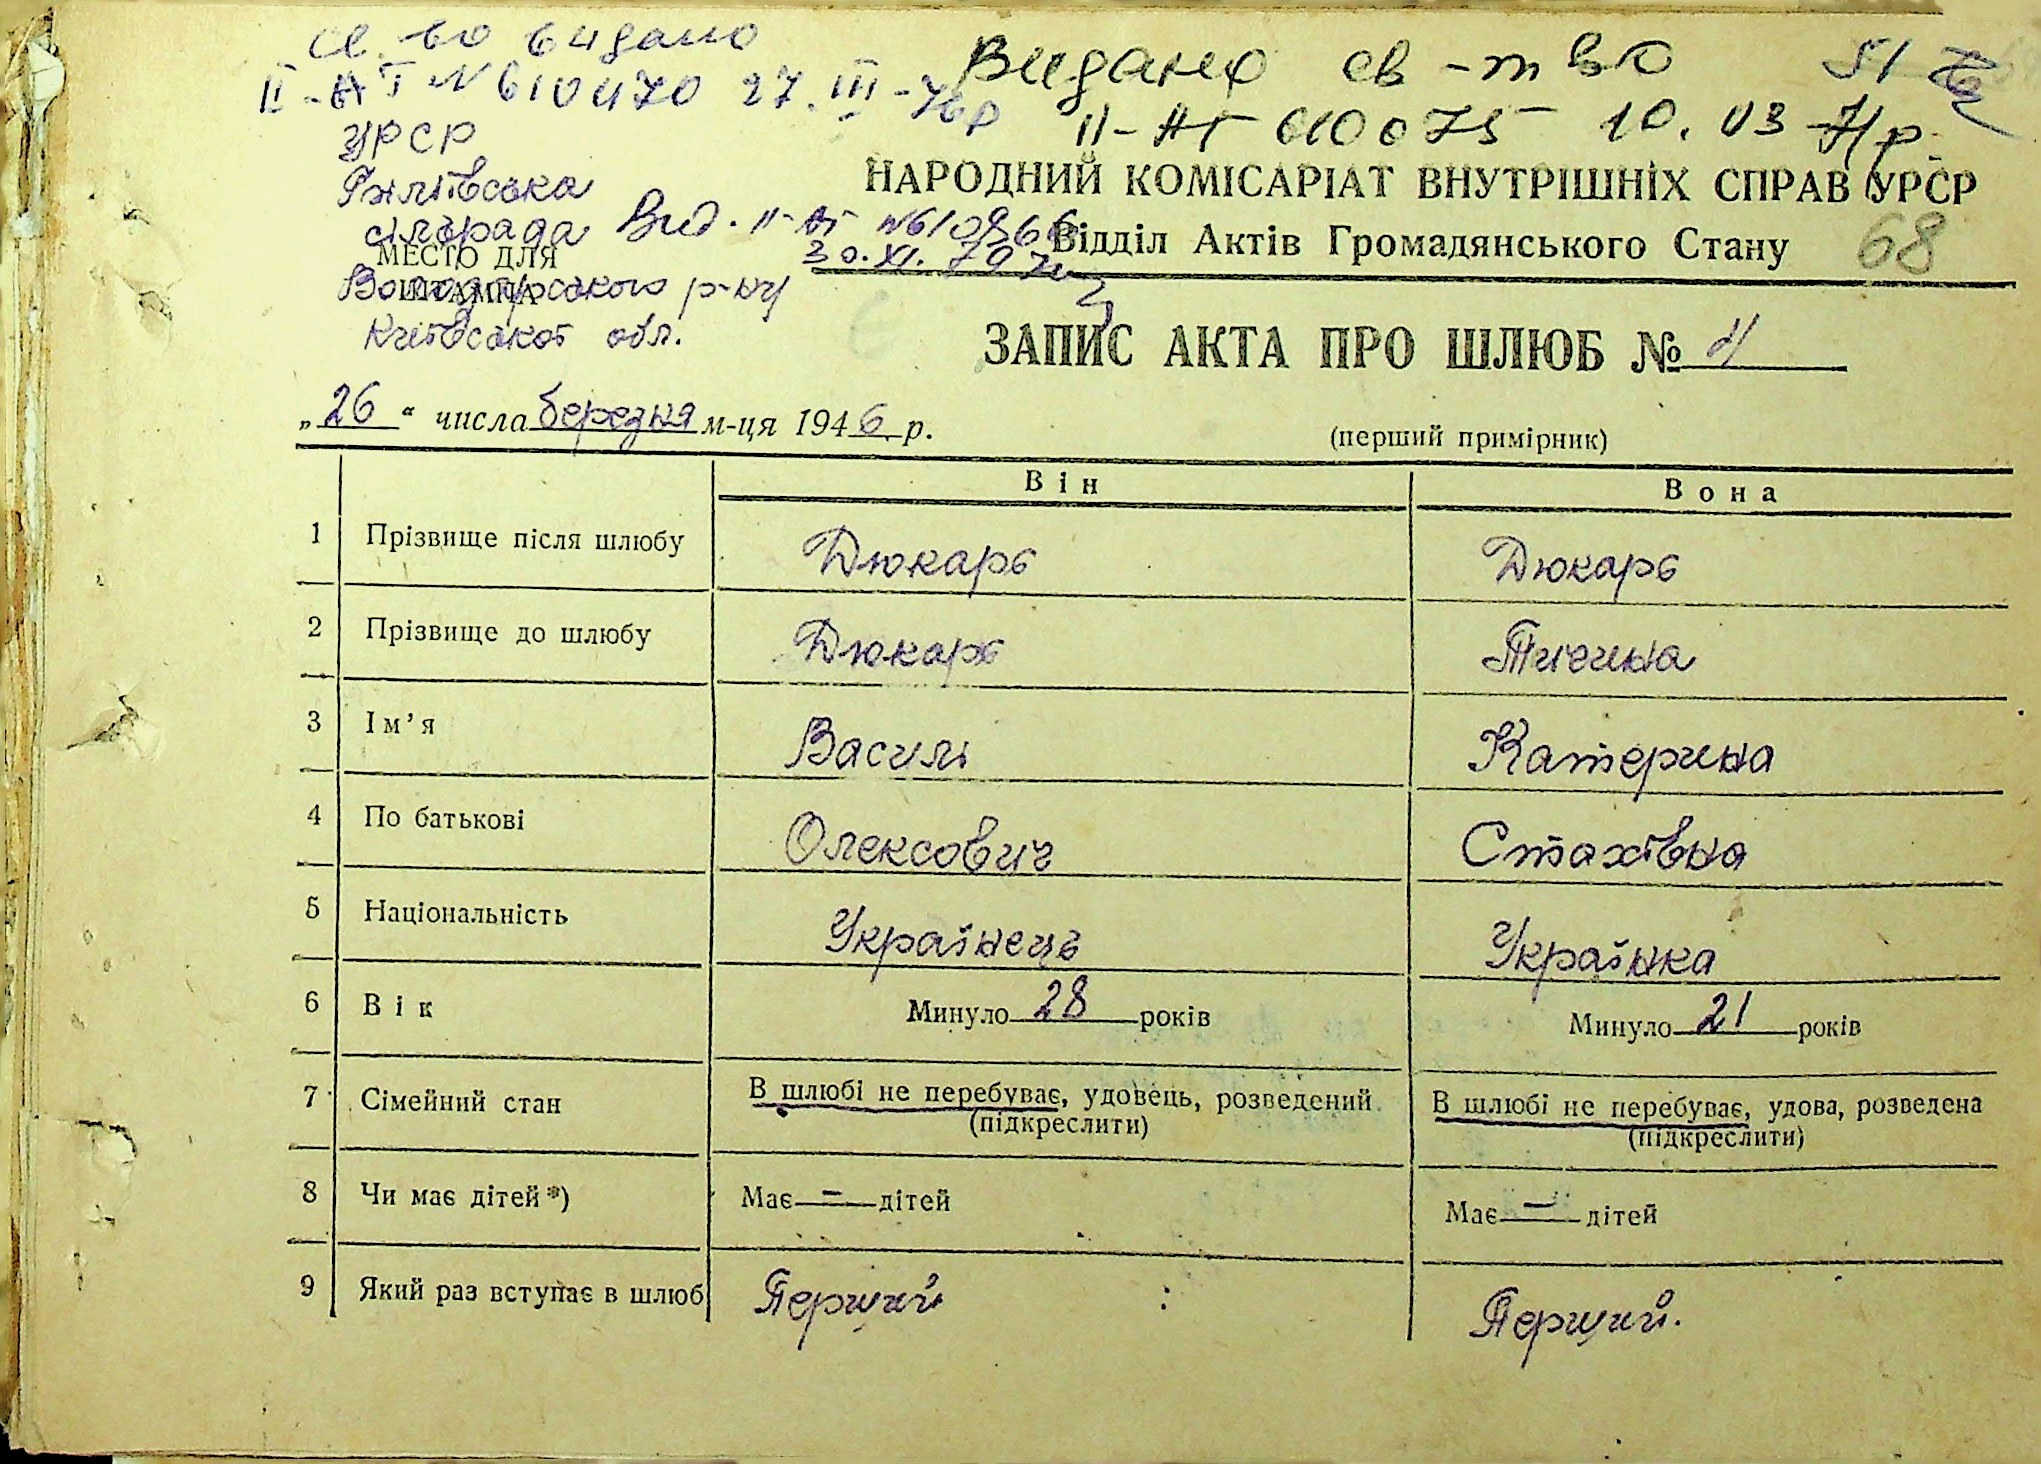 Св. во видано
II-АТ № 610470 27.III-76р
Видано св-тво
II-АТ 610075 10.03-71р.
УРСР
сільрада
Вид. II-АТ
30.XI.79
МЕСТО ДЛЯ
ШТАМПА
Володарського р-ну
Київської обл.
НАРОДНИЙ КОМІСАРІАТ ВНУТРІШНІХ СПРАВ УРСР
Відділ Актів Громадянського Стану
68
ЗАПИС АКТА ПРО ШЛЮБ №
„26“ числа березня м-ця 1946 р.
(перший примірник)
Він Вона
1 Прізвище після шлюбу Дюкарь Дюкарь
2 Прізвище до шлюбу Дюкарь Тичина
3 Ім’я Василь Катерина
4 По батькові Олексович Стахівна
5 Національність Українець Українка
6 Вік Минуло 28 років Минуло 21 років
7 Сімейний стан В шлюбі не перебуває, удовець, розведений (підкреслити) В шлюбі не перебуває, удова, розведена (підкреслити)
8 Чи має дітей*) Має — дітей Має — дітей
9 Який раз вступає в шлюб Перший Перший.